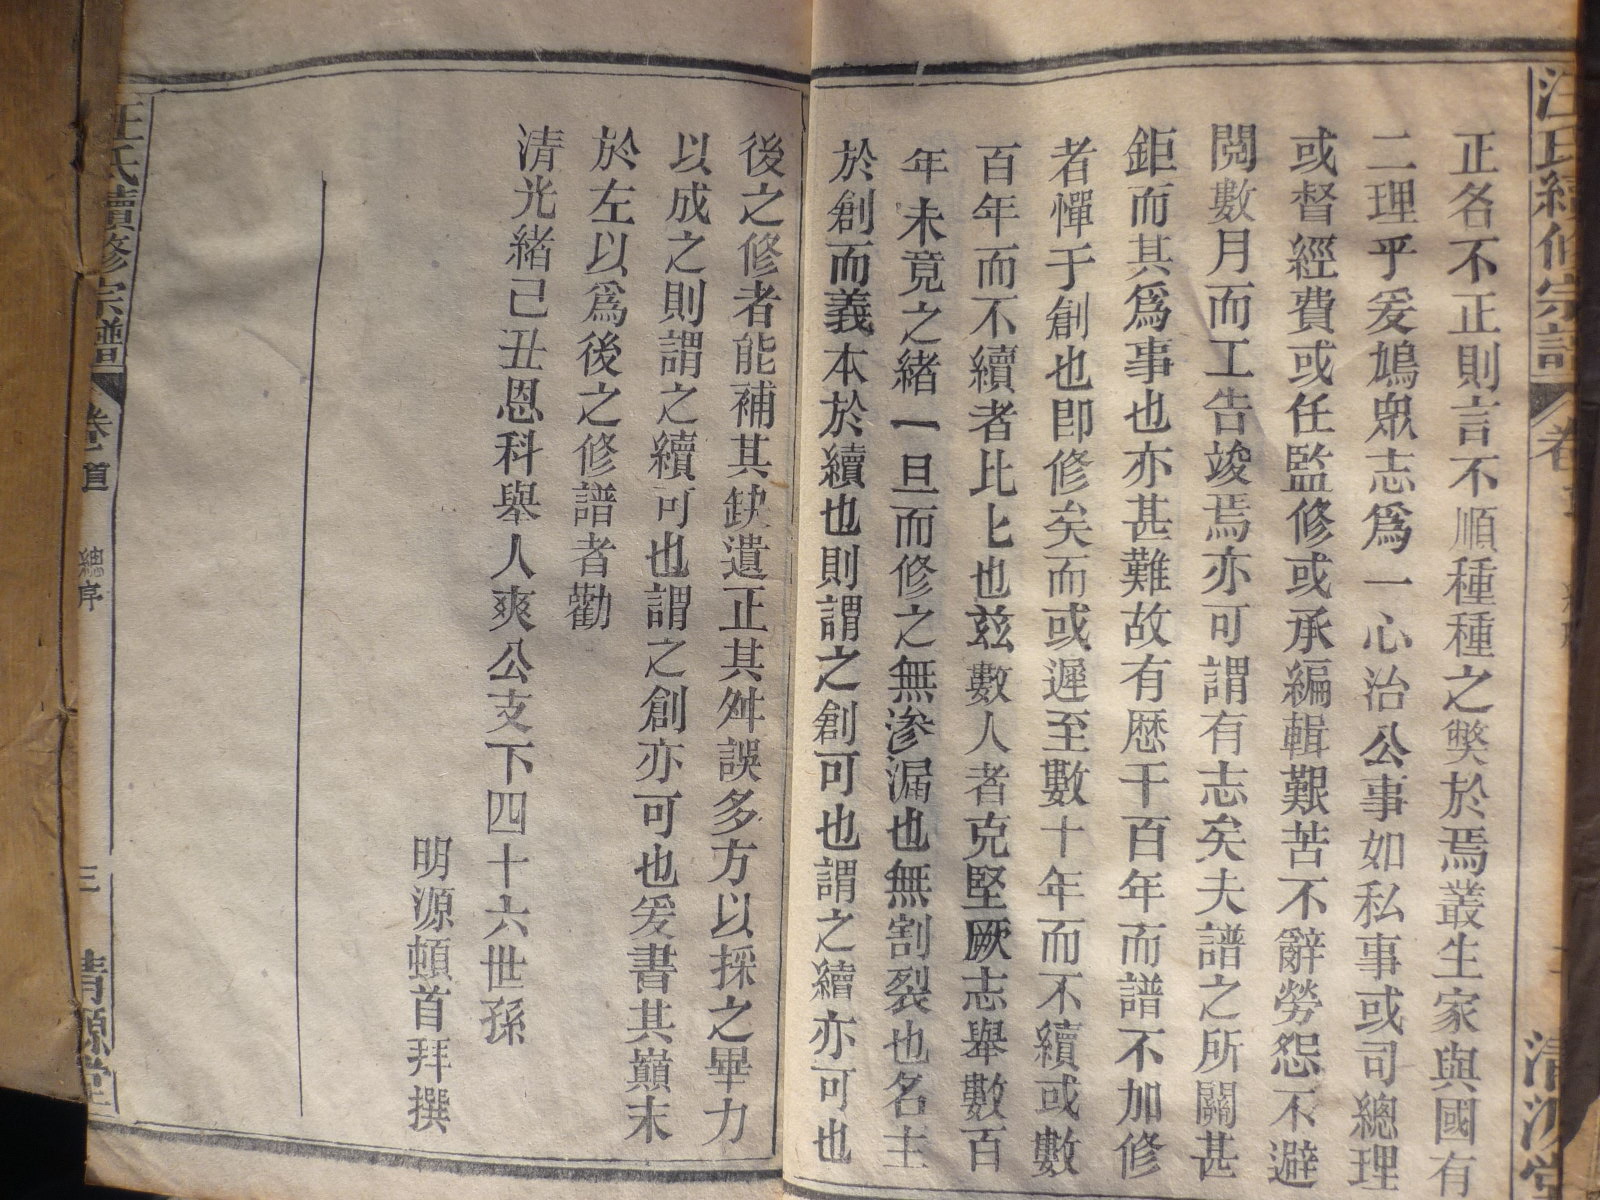 汪氏續修宗譜
正各不正則言不順種種之獘於焉叢生家與國有
二理乎爰鳩眾志爲一心治公事如私事或司總理
或督經費或任監修或承編輯艱苦不辭勞怨不避
閱數月而工告竣焉亦可謂有志矣夫譜之所關甚
鉅而其爲事也亦甚難故有歷千百年而譜不加修
者憚于創也卽修矣而或遲至數十年而不續或數
百年而不續者比比也茲數人者克堅厥志舉數百
年未竟之緒一旦而修之無滲漏也無割裂也名主
於創而義本於續也則謂之創可也謂之續亦可也
後之修者能補其缺遺正其舛誤多方以採之畢力
以成之則謂之續可也謂之創亦可也爰書其巔末
於左以爲後之修譜者勸
清光緒己丑恩科舉人爽公支下四十六世孫
明源頓首拜撰
汪氏續修宗譜 卷首 總序 三 清源堂